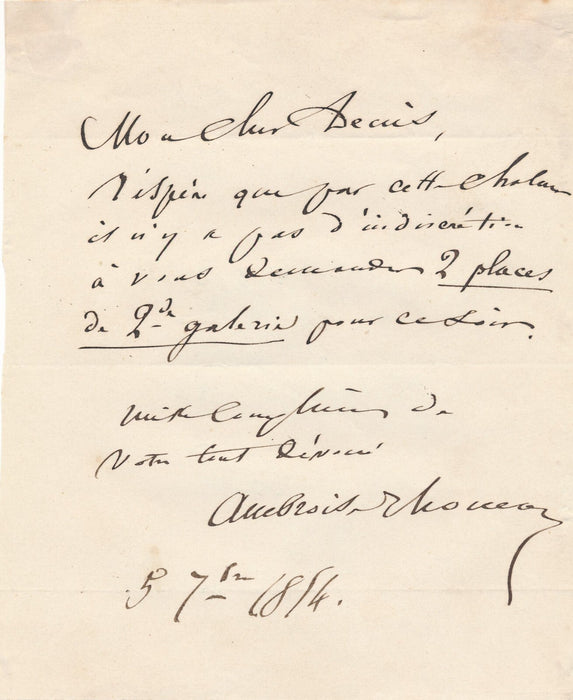 Mon cher Denis,
J'espère que par cette chaleur
il n'y a pas d'indiscrétion
à vous demander 2 places
de 2de galerie pour ce soir.
mille complimens de
votre tout dévoué
Ambroise Thomas
5 7bre 1854.